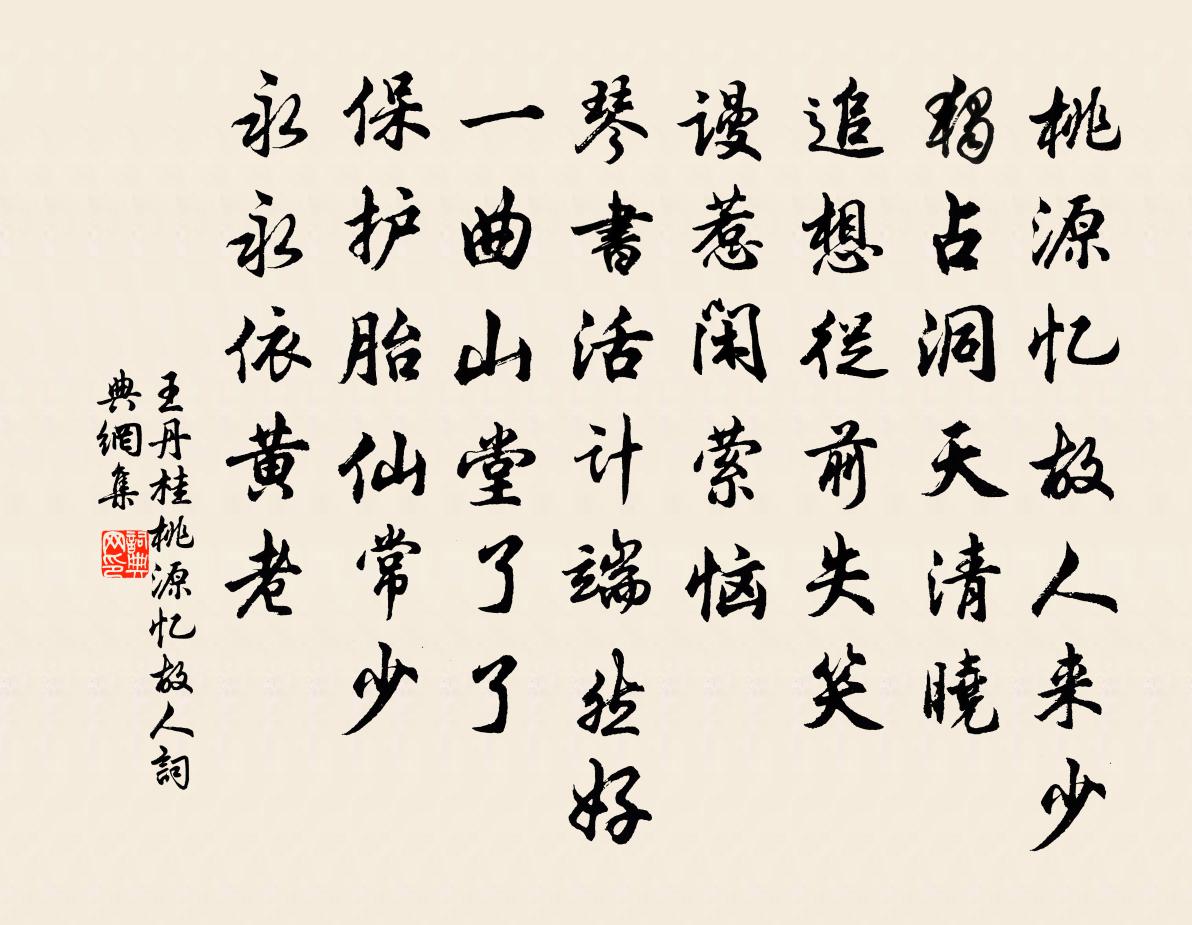 桃源忆故人来少
獨占洞天清曉
追想從前失笑
谩惹闲萦恼
琴書活计端然好
一曲山堂了了
保护胎仙常少
永永依黄老
王丹桂桃源忆故人詞
典網集
詞典
网印